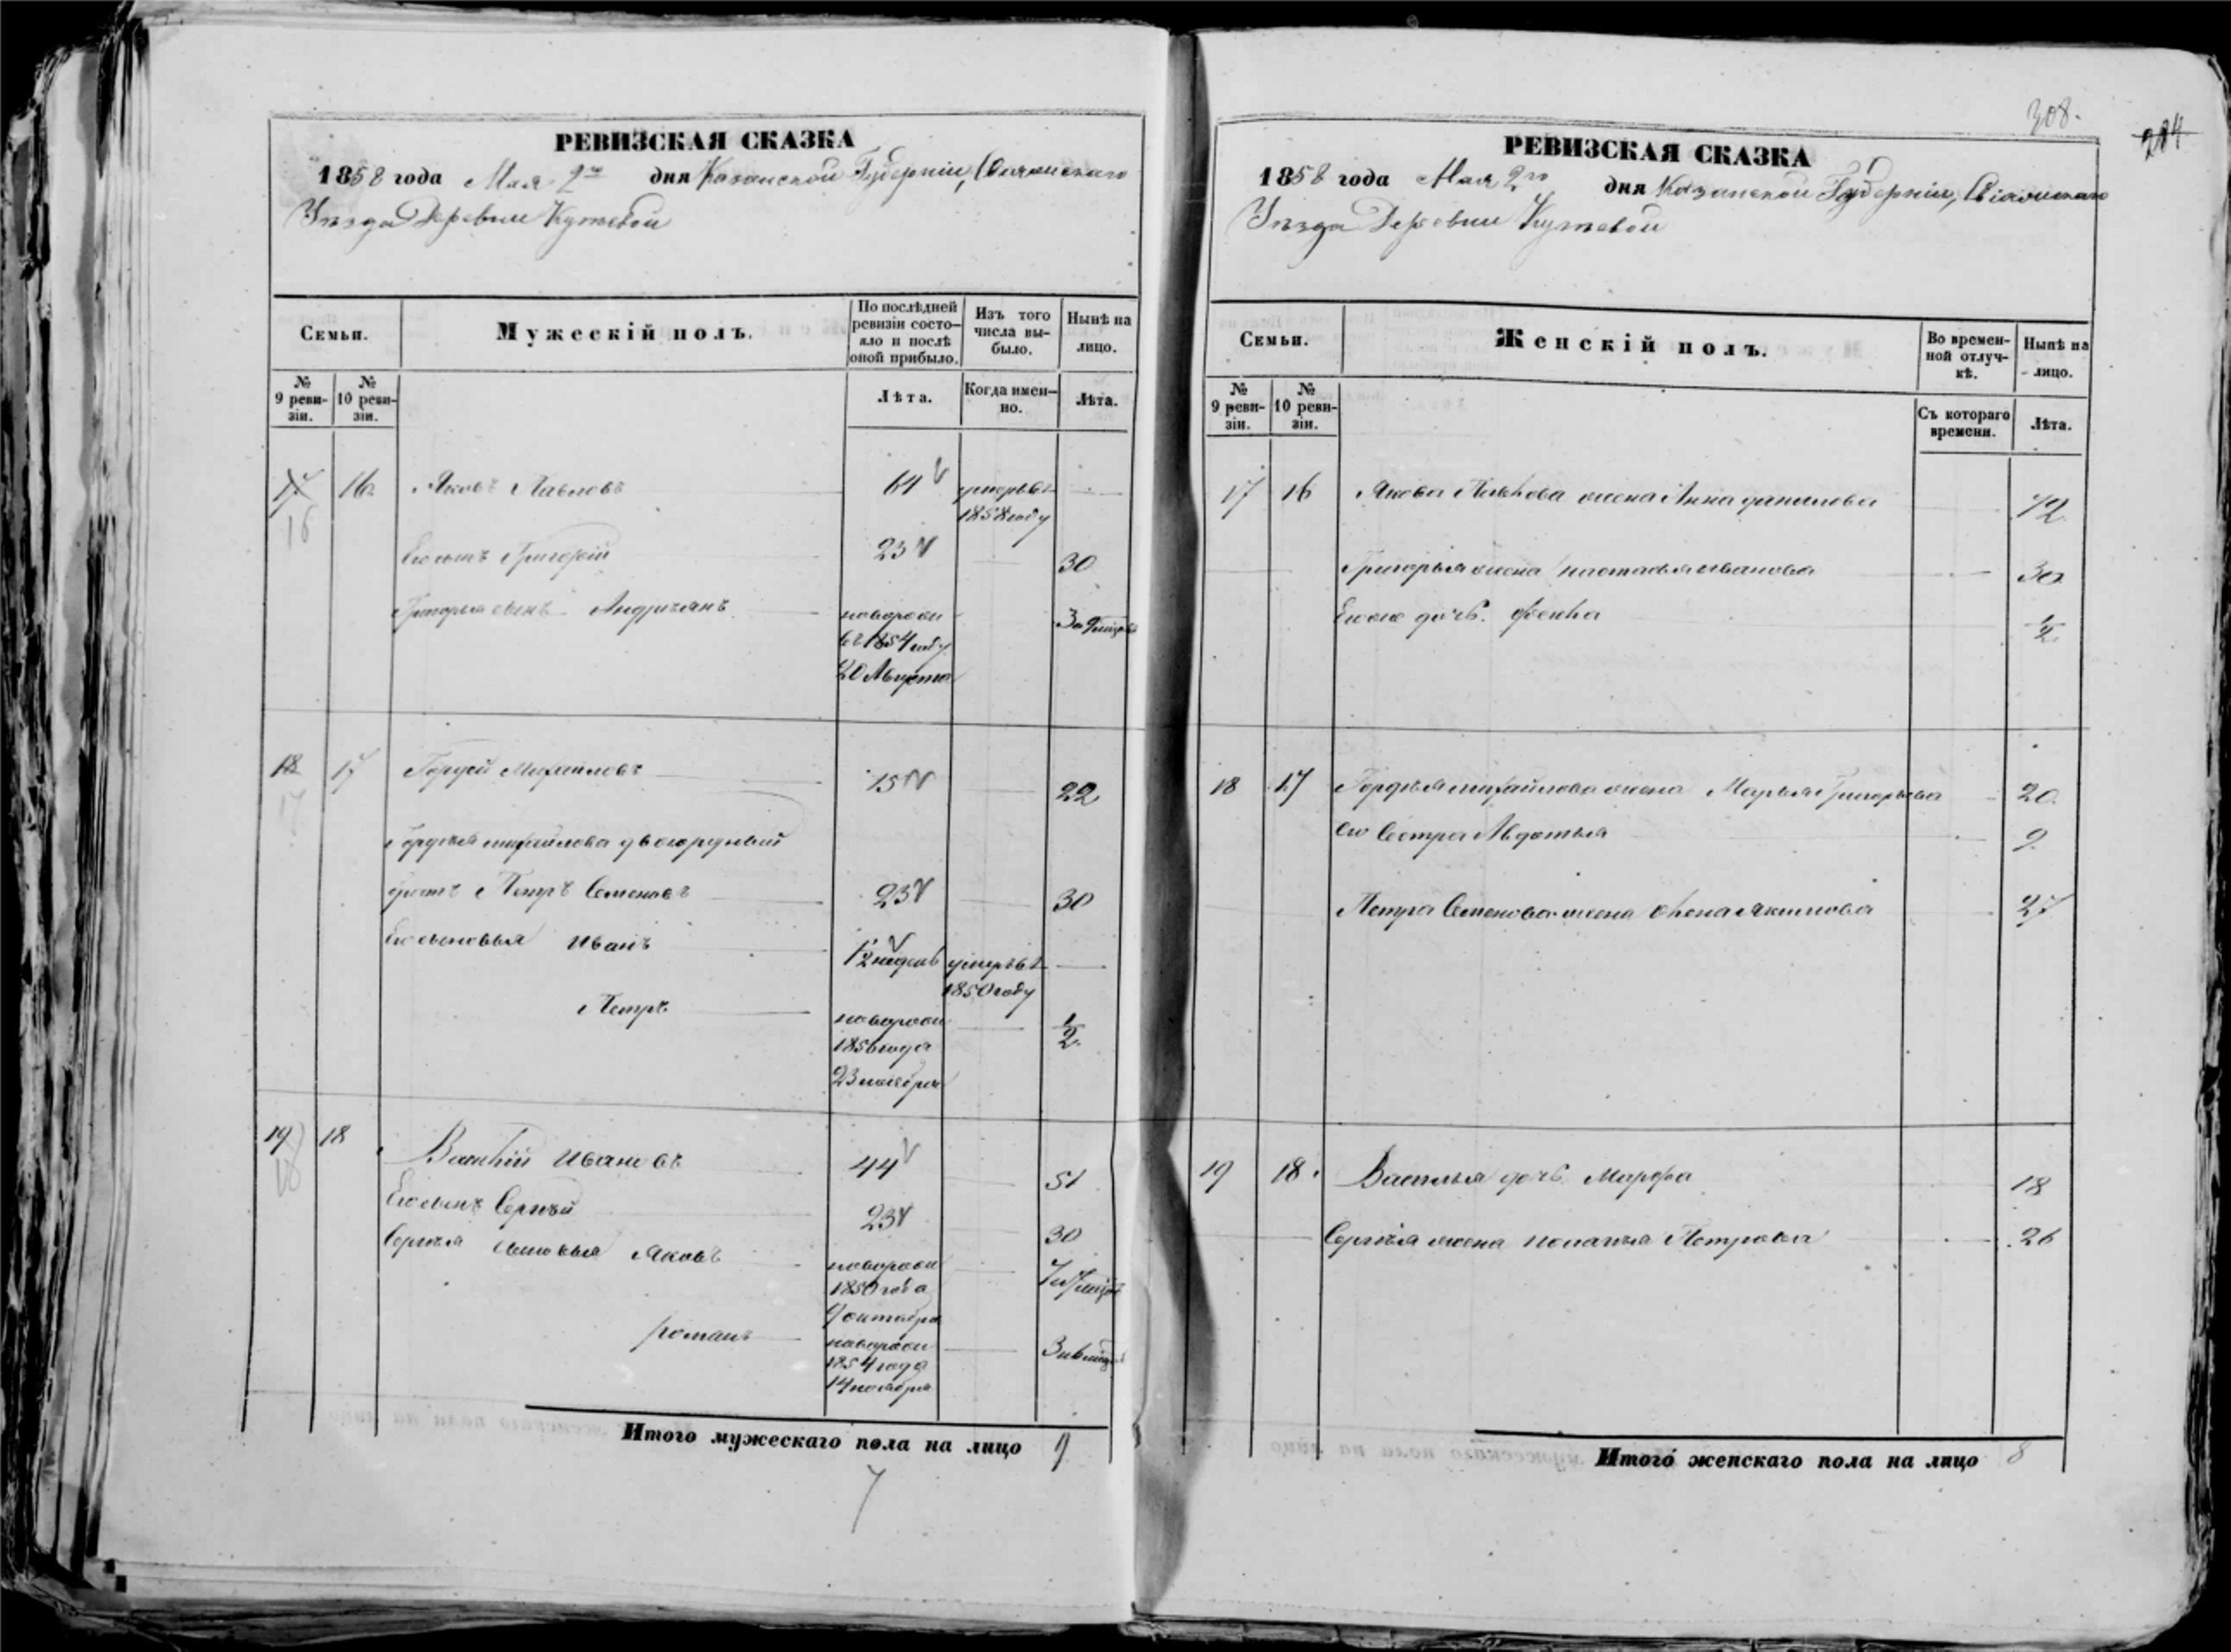 РЕВИЗСКАЯ СКАЗКА
1858 года Мая 2го дня Казанской Губерніи, Свіяжскаго
Уѣзда Деревни
Семьи.
Мужескій полъ.
По послѣдней ревизіи состо-
яло и послѣ
оной прибыло.
Изъ того
числа вы-
было.
Нынѣ на
лицо.
№
9 реви-
зіи.
№
10 реви-
зіи.
Лѣта.
Когда имен-
но.
Лѣта.
17 16 Яковъ Павловъ 64 умеръ въ
16 1858 году
Его сынъ Григорій 23 30
Григорья сынъ Андріянъ новорож 3 и
въ 1854 году
20 Августа
18 17 Гордей Михайловъ 15 22
17
Гордѣя Михайлова двоюродный
братъ Петръ Семеновъ 23 30
Его сыновья Иванъ 12 недель умеръ въ
1850 году
Петръ новорож 1/2
года
23 ноября
19 18 Василій Ивановъ 44 51
18
Его сынъ Сергѣй 23 30
Сергѣя сыновья Яковъ новорож 7 и
1850 года
октября
Романъ новорож 3 и
1854 года
14 ноября
Итого мужескаго пола на лицо 9
7
308.
284
РЕВИЗСКАЯ СКАЗКА
1858 года Мая 2го дня Казанской Губерніи, Свіяжскаго
Уѣзда Деревни
Семьи.
Женскій полъ.
Во времен-
ной отлуч-
кѣ.
Нынѣ на
лицо.
№
9 реви-
зіи.
№
10 реви-
зіи.
Съ котораго
времени.
Лѣта.
17 16 Якова Павлова жена Анна Данилова 42
Григорья жена Настасья Иванова 30
Его же дочь 1/2
18 17 Гордѣя Михайлова жена Марья Григорьева 20
Его Сестра Авдотья 9
Петра Семенова жена Акимова 27
19 18 Василья дочь Марфа 18
Сергѣя жена Пелагѣя Петрова 26
Итого женскаго пола на лицо 8